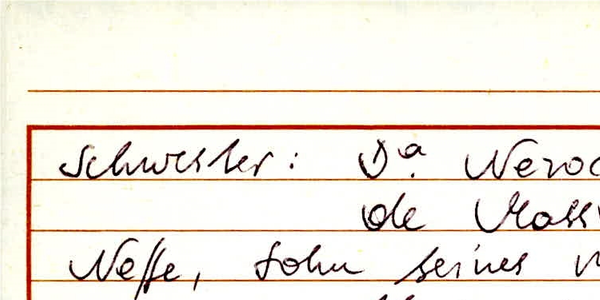 Schwester: Dª. Neroc
de Mass
Neffe, Sohn seines